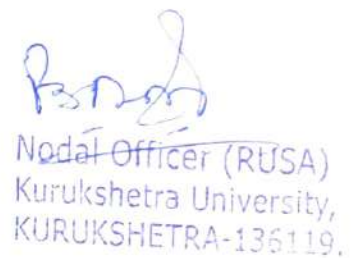 Nodal Officer (RUSA)
Kurukshetra University,
KURUKSHETRA-136119.